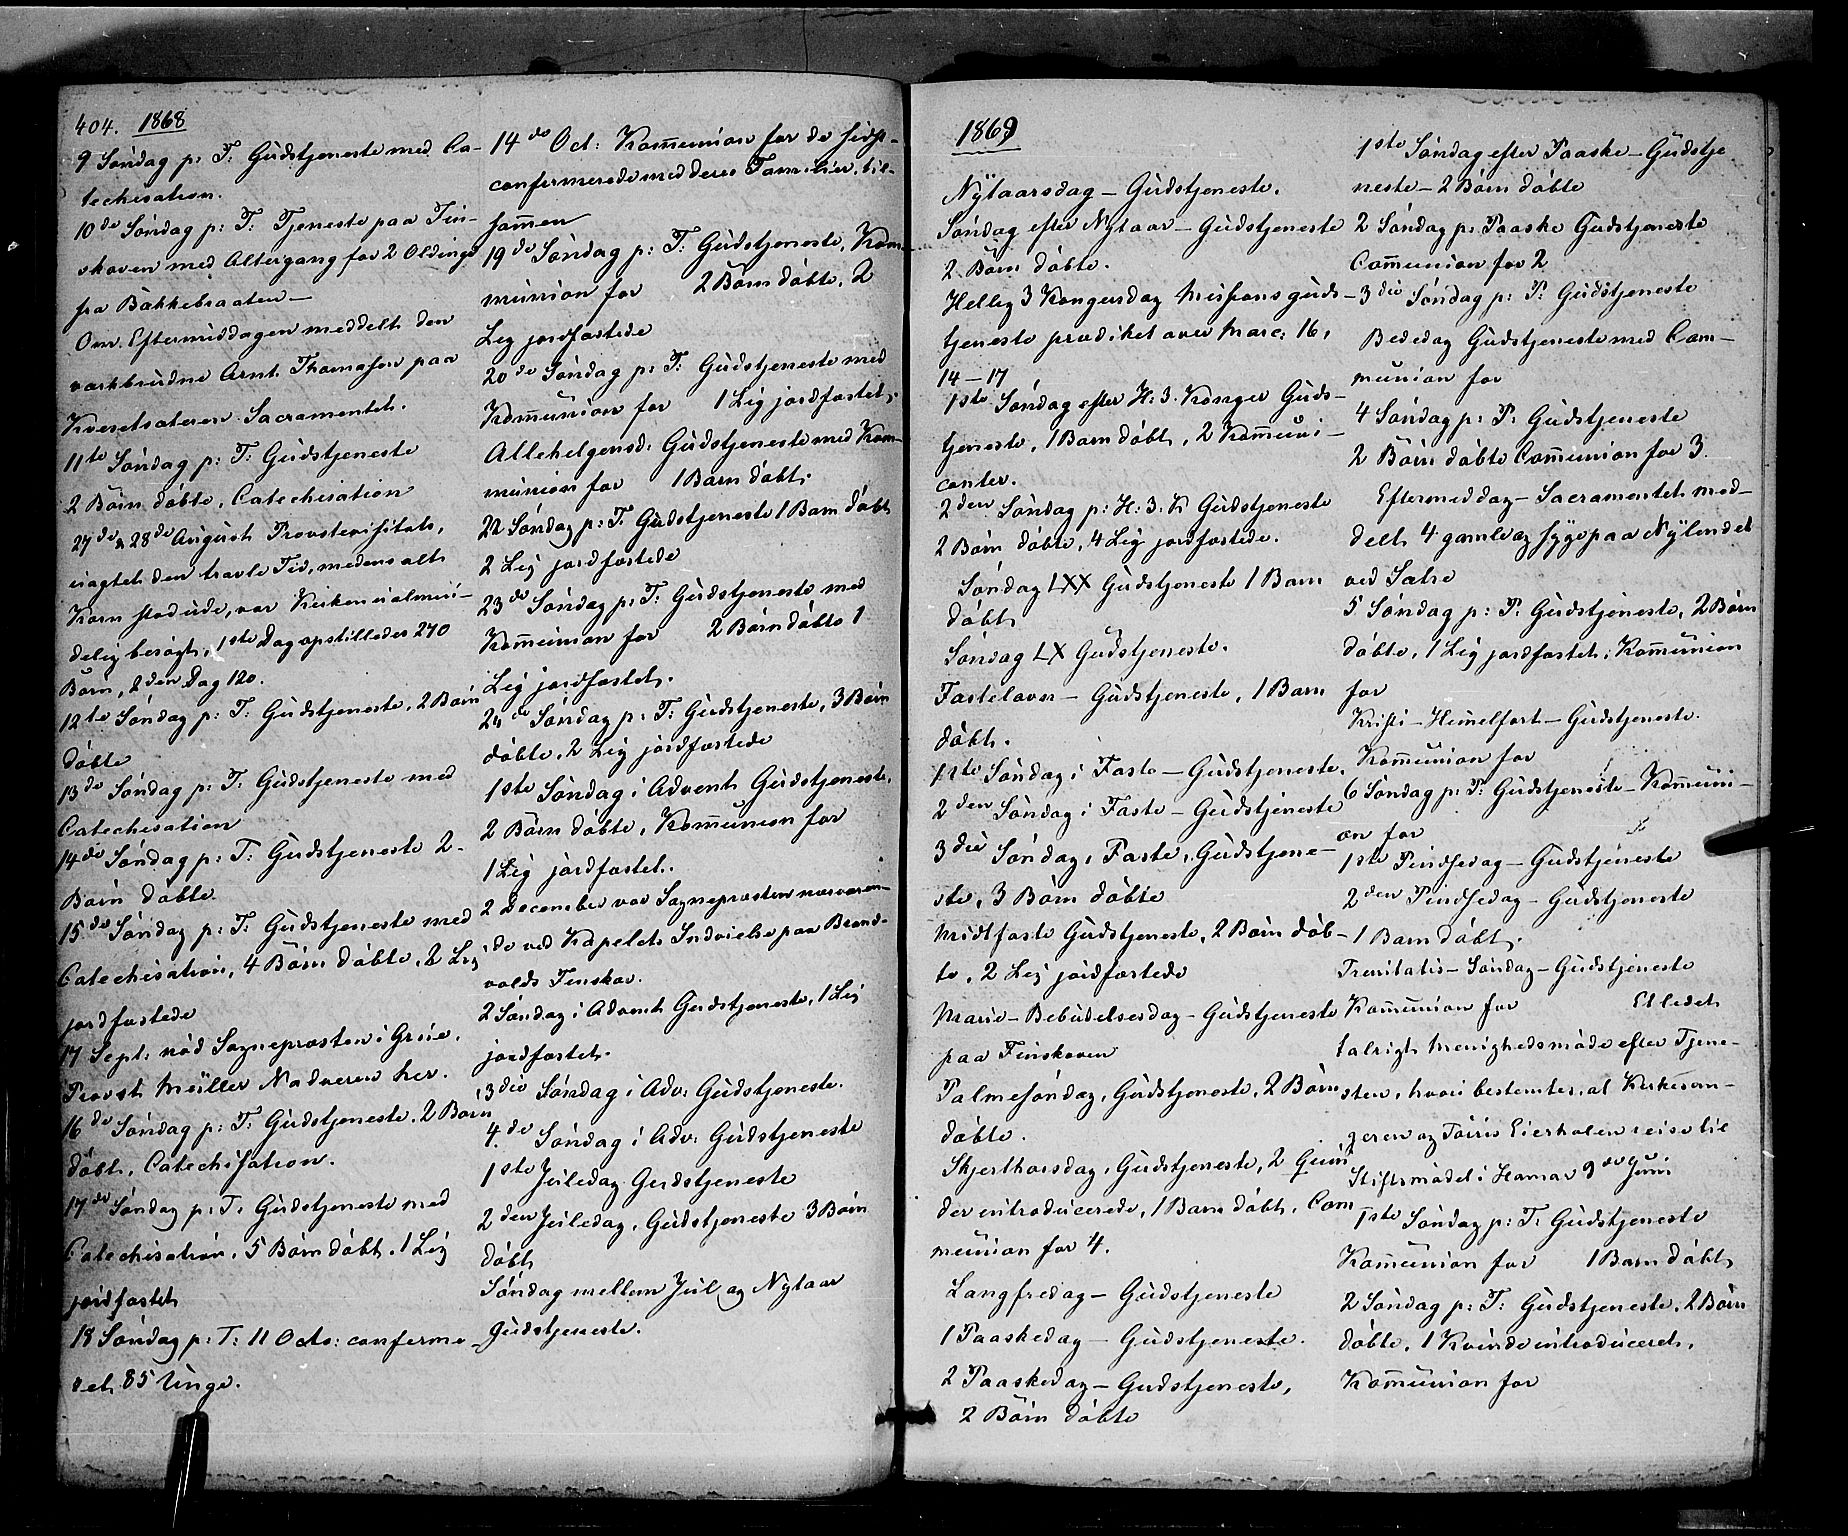 404. 1868
9 Søndag p: T: Gudstjeneste med Ca-
techisation.
10de Søndag p: T: Tjeneste paa Fin-
skoven med Altergang for 2 Oldinge
fra Bakkebraaten —
Om Eftermiddagen meddelt den
værkbrudne Arnt Thomasen paa
Kvesetsæteren Sacramentet.
11te Søndag p: T: Gudstjeneste
2 Børn døbte, Catechisation
27de & 28de August Provstevisitats,
uagtet den travle Tid, medens alt
Korn stod ude, var Kirken ualmin-
delig besøgt, 1ste Dag opstilledes 270
Børn, 2den Dag 120.
12te Søndag p: T: Gudstjeneste, 2 Børn
døbte
13de Søndag p: T: Gudstjeneste med
Catechisation
14de Søndag p: T: Gudstjeneste 2
Børn døbte.
15de Søndag p: T: Gudstjeneste med
Catechisation, 4 Børn døbte, 2 Lig
jordfæstede
17 Sept: nød Sognepræsten i Grue,
Provst Müller Nadveren her.
16de Søndag p: T: Gudstjeneste, 2 Børn
døbt, Catechisation.
17de Søndag p: T: Gudstjeneste med
Catechisation, 5 Børn døbt, 1 Lig
jordfæstet
18 Søndag p: T: 11 Octo: confirme-
ret 85 Unge.
14de Oct: Kommunion for de sidst-
confirmerede med deres Familier, til-
sammen
19de Søndag p: T: Gudstjeneste, Kom-
munion for 2 Børn døbte, 2
Lig jordfæstede
20de Søndag p: T: Gudstjeneste med
Kommunion for 1 Lig jordfæstet,
Allehelgensd: Gudstjeneste med Kom-
munion for 1 Barn døbt.
22 Søndag p: T: Gudstjeneste 1 Barn døbt
2 Lig jordfæstede
23de Søndag p: T: Gudstjeneste med
Kommunion for 2 Børn døbte 1
Lig jordfæstet.
24de Søndag p: T: Gudstjeneste, 3 Børn
døbte, 2 Lig jordfæstede
1ste Søndag i Advent Gudstjeneste,
2 Børn døbte, Kommunion for
1 Lig jordfæstet.
2 December var Sognepræsten nærværen-
de ved Kapelets Indvielse paa Brand-
volds Finskov.
2 Søndag i Advent Gudstjeneste, 1 Lig
jordfæstet.
3die Søndag i Adv: Gudstjeneste.
4.de Søndag i Adv: Gudstjeneste
1ste Juledag Gudstjeneste
2den Juledag, Gudstjeneste 3 Børn
døbt
Søndag mellem Jul og Nytaar
Gudstjeneste.
1869
Nytaarsdag — Gudstjeneste.
Søndag efter Nytaar — Gudstjeneste
2 Børn døbte.
Hellig 3 Kongersdag Missionsguds-
tjeneste prædiket over Marc: 16,
14—17
1ste Søndag efter H: 3. Konger Guds-
tjeneste, 1 Barn døbt, 2 Kommuni-
canter.
2den Søndag p: H: 3: K Gudstjeneste
2 Børn døbte, 4 Lig jordfæstede.
Søndag LXX Gudstjeneste 1 Barn
døbt
Søndag LX Gudstjeneste.
Fastelaven — Gudstjeneste, 1 Barn
døbt.
1ste Søndag i Faste — Gudstjeneste,
2den Søndag i Faste — Gudstjeneste
3die Søndag i Faste, Gudstjene-
ste, 3 Børn døbte
Midtfaste Gudstjeneste, 2 Børn døb-
te, 2 Lig jordfæstede
Marie-Bebudelsesdag — Gudstjeneste
paa Finskoven
Palmesøndag, Gudstjeneste, 2 Børn
døbte.
Skjerthorsdag, Gudstjeneste, 2 Quin-
der introducerede, 1 Barn døbt, Com
munion for 4.
Langfredag — Gudstjeneste
1 Paaskedag — Gudstjeneste.
2 Paaskedag — Gudstjeneste,
2 Børn døbte
1ste Søndag efter Paaske — Gudstje
neste — 2 Børn døbte
2 Søndag p: Paaske Gudstjeneste
Communion for 2
3die Søndag p: P: Gudstjeneste
Bededag Gudstjeneste med Com-
munion for
4 Søndag p: P: Gudstjeneste
2 Børn døbte Communion for 3.
Eftermiddag — Sacramentet med-
delt 4 gamle og syge paa Nylendet
ved Sætre
5 Søndag p: P: Gudstjeneste, 2 Børn
døbte, 1 Lig jordfæstet, Kommunion
for
Kristi-Himelfart — Gudstjeneste.
Kommunion for
6 Søndag p: P: Gudstjeneste — Kommuni-
on for
1ste Pindsedag — Gudstjeneste
2den Pindsedag — Gudstjeneste
1 Barn døbt.
Trinitatis-Søndag — Gudstjeneste
Kommunion for Et ledet
talrigt Menighedsmøde efter Tjene-
sten, hvori bestemtes, at Kirkesan-
geren og Eierholen reise til
Stiftsmødet i Hamar 9de Juni
1ste Søndag p: T: Gudstjeneste
Kommunion for 1 Barn døbt,
2 Søndag p: T: Gudstjeneste, 2 Børn
døbte, 1 Kvinde introduceret,
Kommunion for